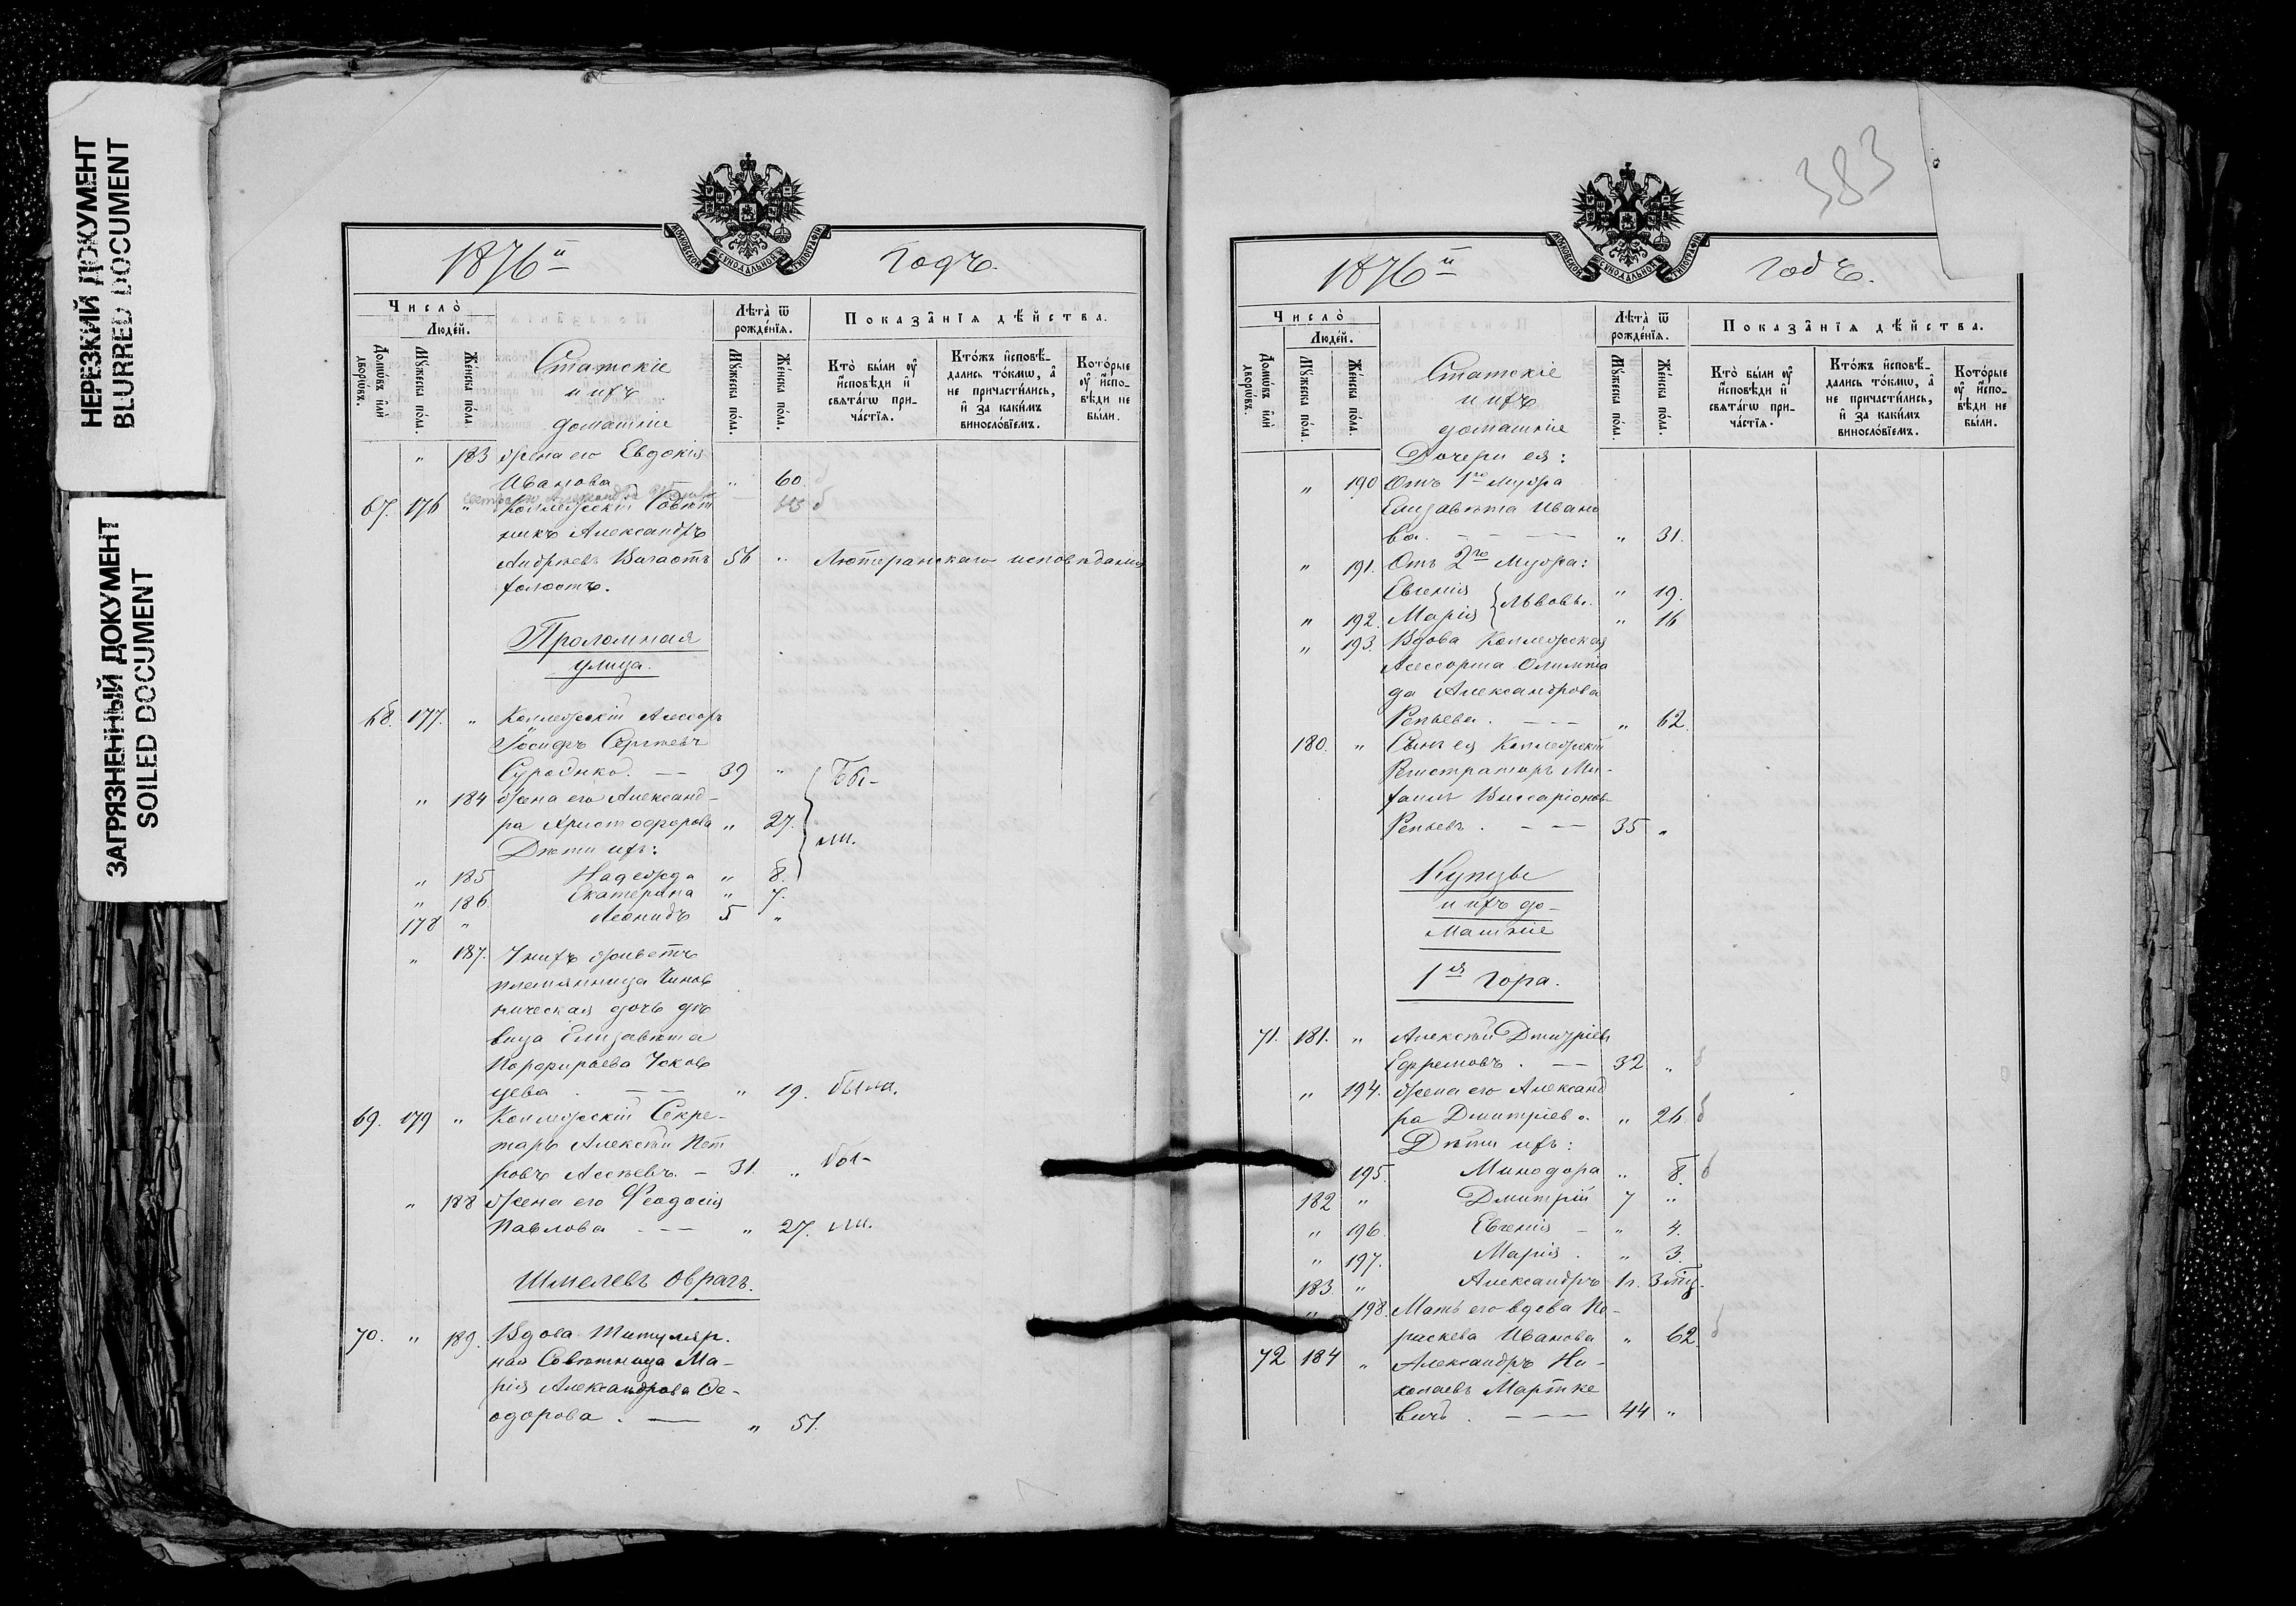 НЕРЕЗКИЙ ДОКУМЕНТ
BLURRED DOCUMENT
ЗАГРЯЗНЕННЫЙ ДОКУМЕНТ
SOILED DOCUMENT
МОСКОВСКОЙ СѴНОДАЛЬНОЙ ТИПОГРАФІИ
1876й годъ.
Число̀
Люде́й.
Домѡ́въ и҆лѝ дворѡ́въ.
Мꙋ́жеска по́ла.
Же́нска по́ла.
Статскіе
и ихъ
домашніе
Лѣта̀ ѿ рожде́нїѧ.
Мꙋ́жеска по́ла.
Же́нска по́ла.
Показа̑нїѧ дѣ́йства.
Кто̀ бы́ли ᲂу҆ и҆́сповѣди и҆ свѧта́гѡ при-ча́стїѧ.
Кто́жъ и҆сповѣ́-дались то́кмѡ, а҆ не причасти́лись, и҆ за каки́мъ винослѡ́вїемъ.
Кото́рые ᲂу҆ и҆́спо-вѣди не бы́ли.
" 183 жена его Евдокія
Иванова " 60.
67. 176 " Коллежскій Совѣт
никъ Александръ
Андреевъ 56 " Лютеранскаго исповѣданія
холостъ.
Проломная
улица.
68. 177. " Коллежскій Асессоръ
Іосифъ Сергѣевъ
39 " Бы-
" 184 жена его Александ-
ра Христофорова " 27. ли.
Дѣти ихъ:
" 185 Надежда " 8.
" 186 Екатерина " 7.
178 " Леонидъ 5 "
" 187. У нихъ живетъ
племянница Чинов
ническая дочь дѣ
вица Елизавета
Порфирьева
цева " 19. была.
69. 179 " Коллежскій Секре-
тарь Алексѣй Пет
ровъ - 31. " бы-
" 188 жена его Феодосія
Павлова " 27. ли.
Шмелевъ Оврагъ.
70. " 189. Вдова Титуляр.
ная Совѣтница Ма-
рія Александрова Ѳе-
одорова. " 51.
383
МОСКОВСКОЙ СѴНОДАЛЬНОЙ ТИПОГРАФІИ
1876й годъ.
Число̀
Люде́й.
Домѡ́въ и҆лѝ дворѡ́въ.
Мꙋ́жеска по́ла.
Же́нска по́ла.
Статскіе
и ихъ
домашніе
Лѣта̀ ѿ рожде́нїѧ.
Мꙋ́жеска по́ла.
Же́нска по́ла.
Показа̑нїѧ дѣ́йства.
Кто̀ бы́ли ᲂу҆ и҆́сповѣди и҆ свѧта́гѡ при-ча́стїѧ.
Кто́жъ и҆сповѣ́-дались то́кмѡ, а҆ не причасти́лись, и҆ за каки́мъ винослѡ́вїемъ.
Кото́рые ᲂу҆ и҆́спо-вѣди не бы́ли.
Дочери ея:
" 190 Отъ 1го мужа
Елизавета Ивано
ва. " 31.
" 191. Отъ 2го мужа:
Евгенія " 19.
Львовы.
" 192. Марія " 16
" 193. Вдова Коллежская
Асессорша Олимпіа
да Александрова
Репьева. " 62.
180. " Сынъ ея Коллежскій
Регистраторъ Ми-
хаилъ Виссаріоновъ
Репьевъ. 35 "
Купцы
и ихъ до-
машніе
1ая гора.
71. 181. " Алексѣй Дмитріевъ
Ефремовъ. 32 " б
" 194. жена его Александ
ра Дмитріева. " 26. б
Дѣти ихъ:
195. Минодора " 8. б
182 " Дмитрій 7 "
" 196 Евгенія - " 4.
" 197. Марія. " 3.
183. " Александръ 1 г. 3 мѣс.
" 198. Мать его вдова Па-
раскева Иванова " 62. б
72 184 " Александръ Ни-
колаевъ Мартке
вичъ. 44 "